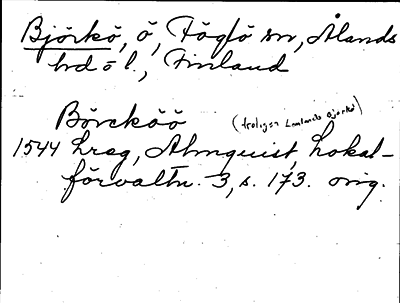 Björkö, ö, Föglö sn, Ålands
hd o l., Finland
Börcköö (troligen Lemlands Björkö)
1544 hreg, Almquist, Lokal-
förvaltn. 3, s. 173. orig.